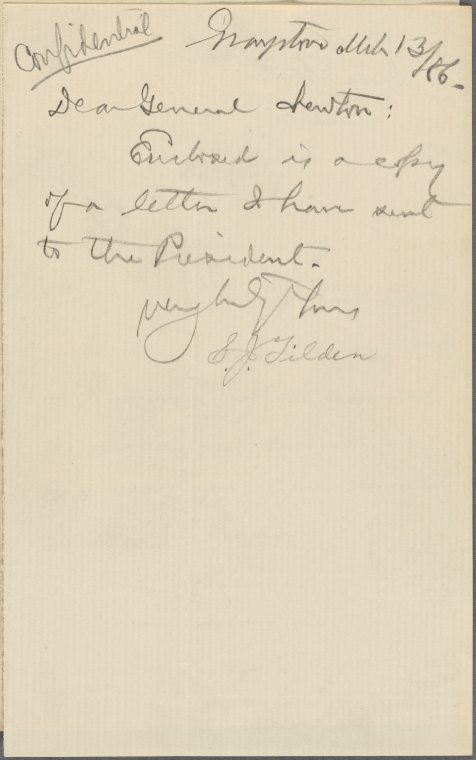 Confidential
Graystone Mch 13/86-
Dear General Newton:
Enclosed is a copy
of a letter I have sent
to the President.
Very truly Yours
S. J. Tilden